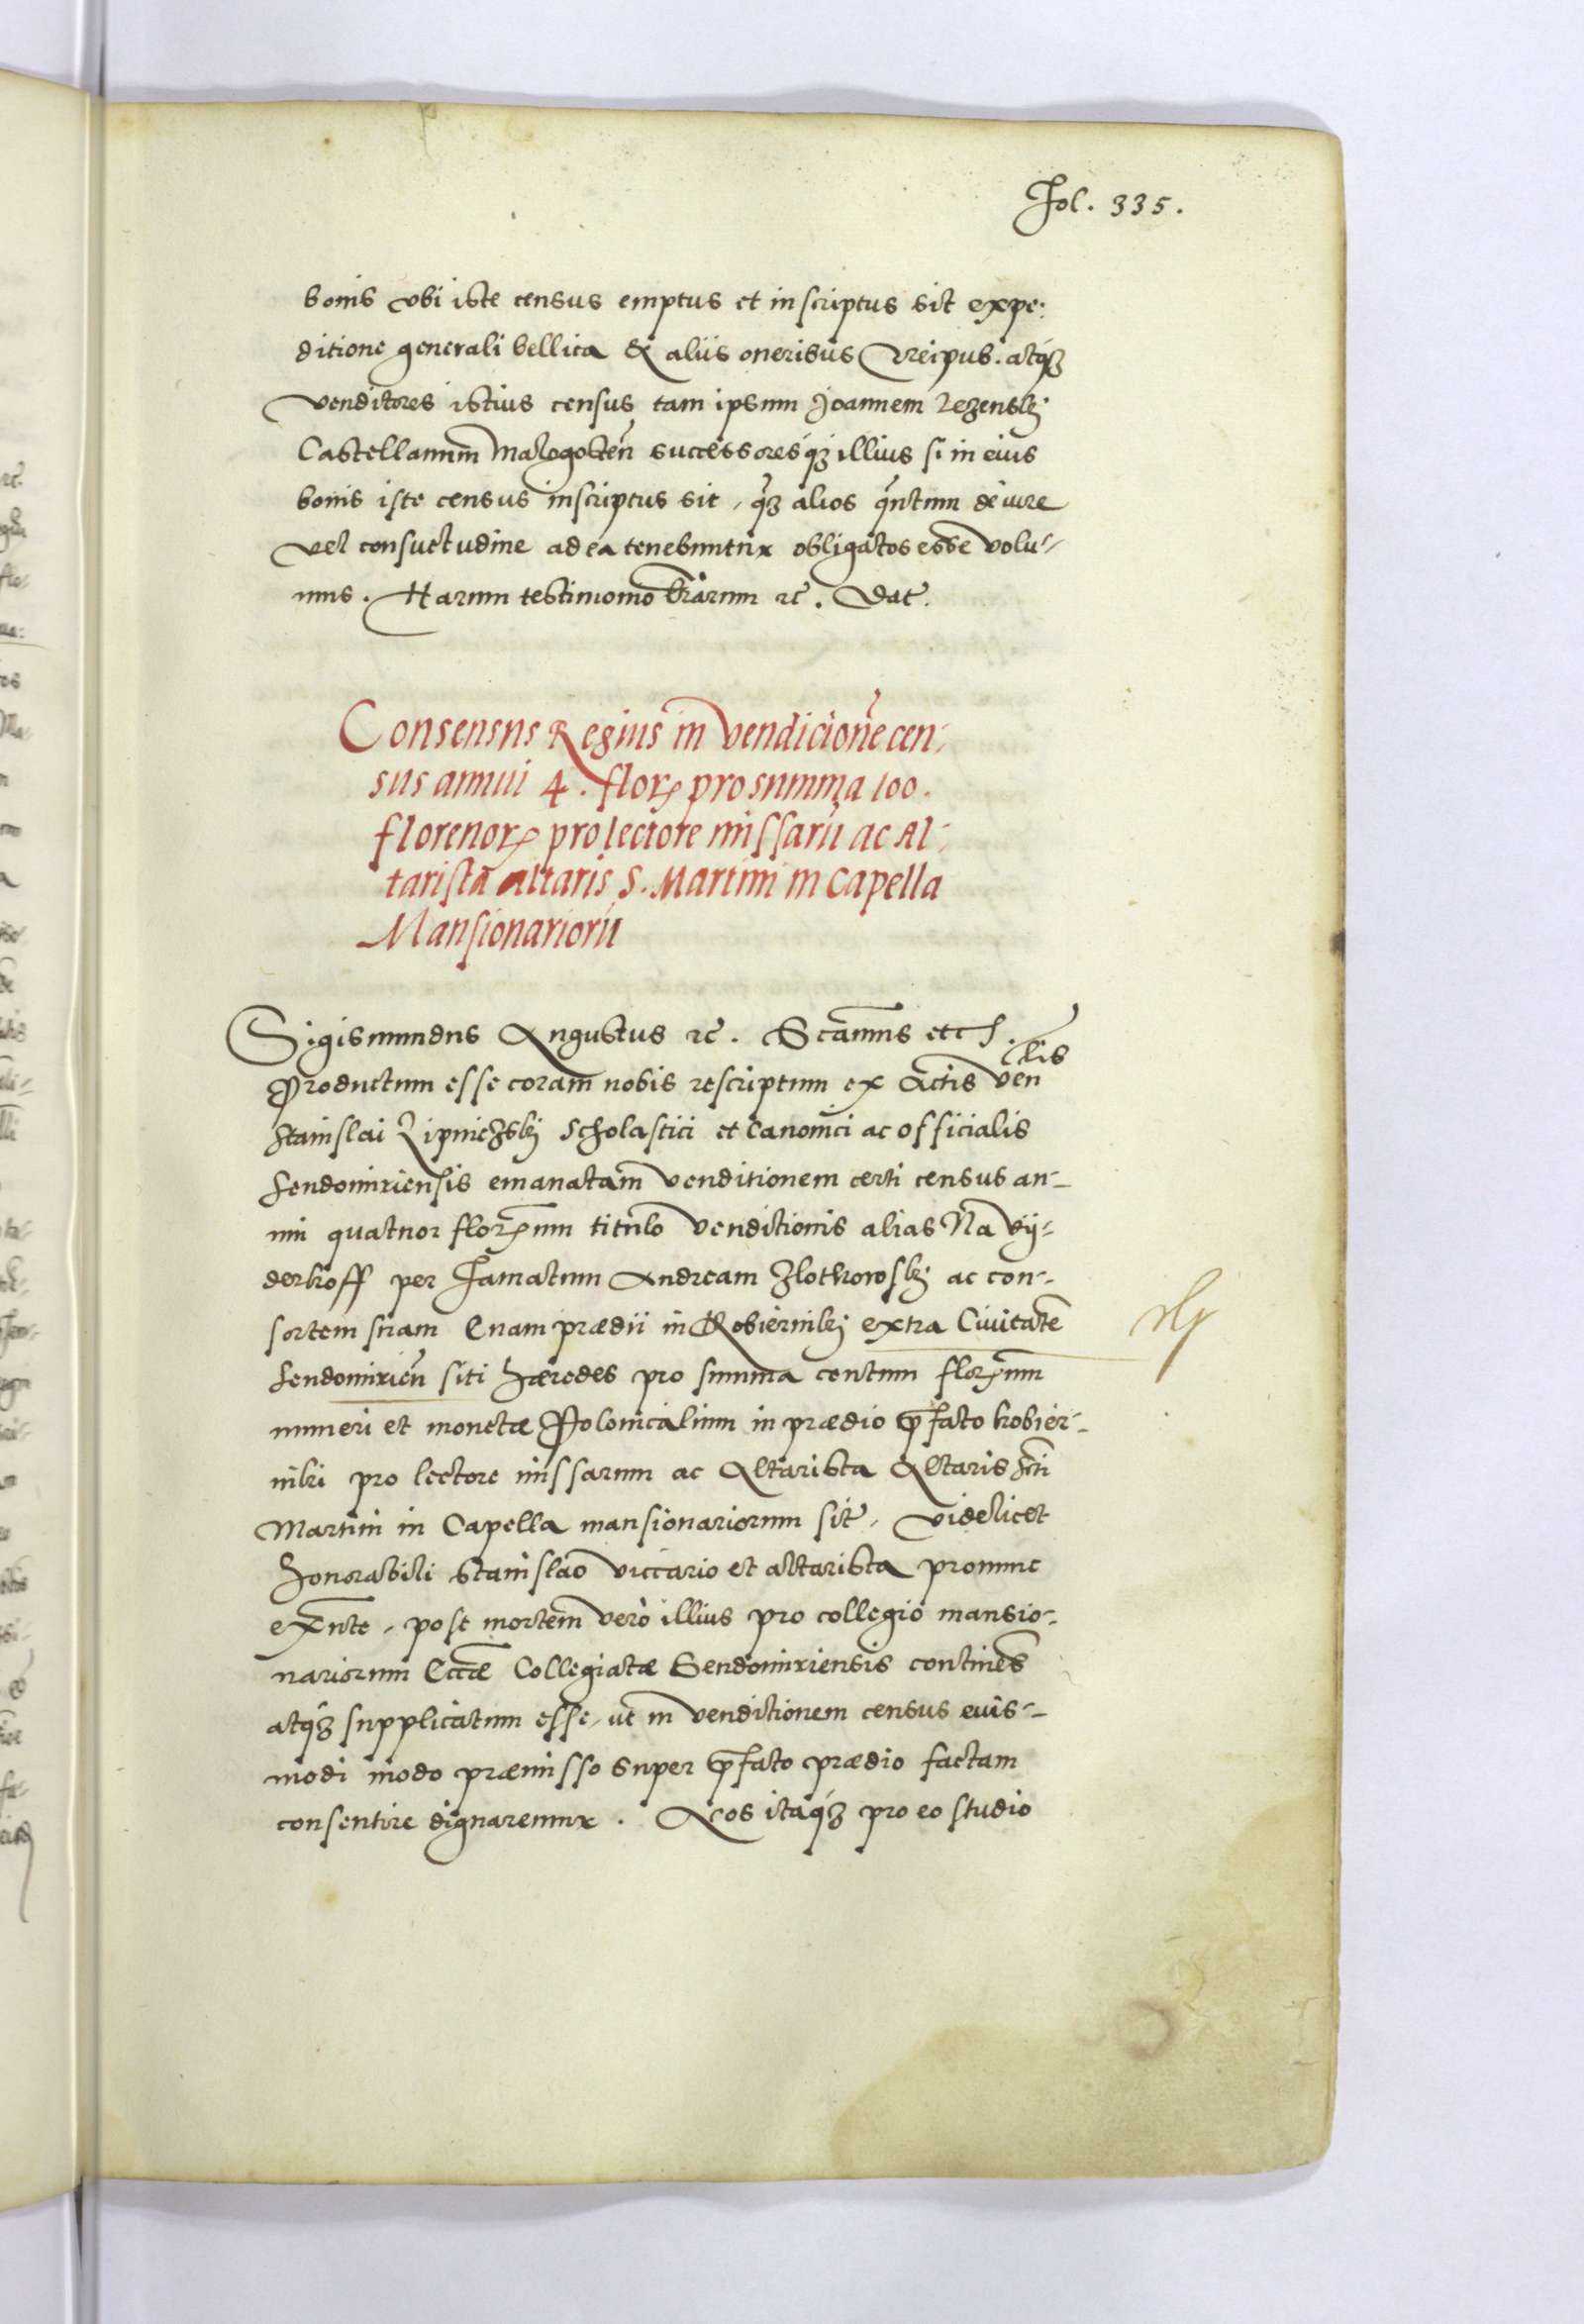 Fol. 335.
bonis vbi iste census emptus et inscriptus sit expe:
ditione generali bellica & aliis oneribus Reipub. atq₃
venditores istius census tam ipsum Joannem
Castellanum Malogosteñ successoresq₃ illius si in eius
bonis iste census inscriptus sit, q₃ alios q̃ntum de iure
vel consuetudine ad ea tenebuntur obligatos esse volu-
mus. Harum testimonio l̃rarum ꝛc. Dat̃.
Consensus Regius in vendicionẽ cen:
sus annui 4. floꝝ pro summa 100.
florenoꝝ pro lectore missarũ ac Al:
tarista altaris S. Martini in Capella
Mansionariorũ
Sigismundus Augustus ꝛc. Sc̃amus etc̃.
Productum esse coram nobis rescriptum ex Actis Veñlis
Stanislai Lipniczskj Scholastici et Canonici ac officialis
Sendomiriensis emanatam venditionem certi census an-
nui quatuor floꝝnum titulo venditionis alias Na vÿ-
derkoff per Famatum Andream Zlothkowskj ac con-
sortem suam Ennam prædii in Kobiernikj extra Ciuitatẽ
Sendomirieñ siti hæredes pro summa centum floꝝnum
numeri et monetæ Polonicalium in prædio p̃fato kobier-
niki pro lectore missarum ac Altarista Altaris Scti
Martini in Capella mansionariorum sit̃, videlicet
honorabili Stanislao viccario et altarista pro nunc
ex̃nte, post mortem verò illius pro collegio mansio-
nariorum Eccl̃æ Collegiatæ Sendomiriensis continẽs
atq₃ supplicatum esse, ut in venditionem census euis-
modi modo præmisso super p̃fato prædio factam
consentire dignaremur. Nos itaq₃ pro eo studio